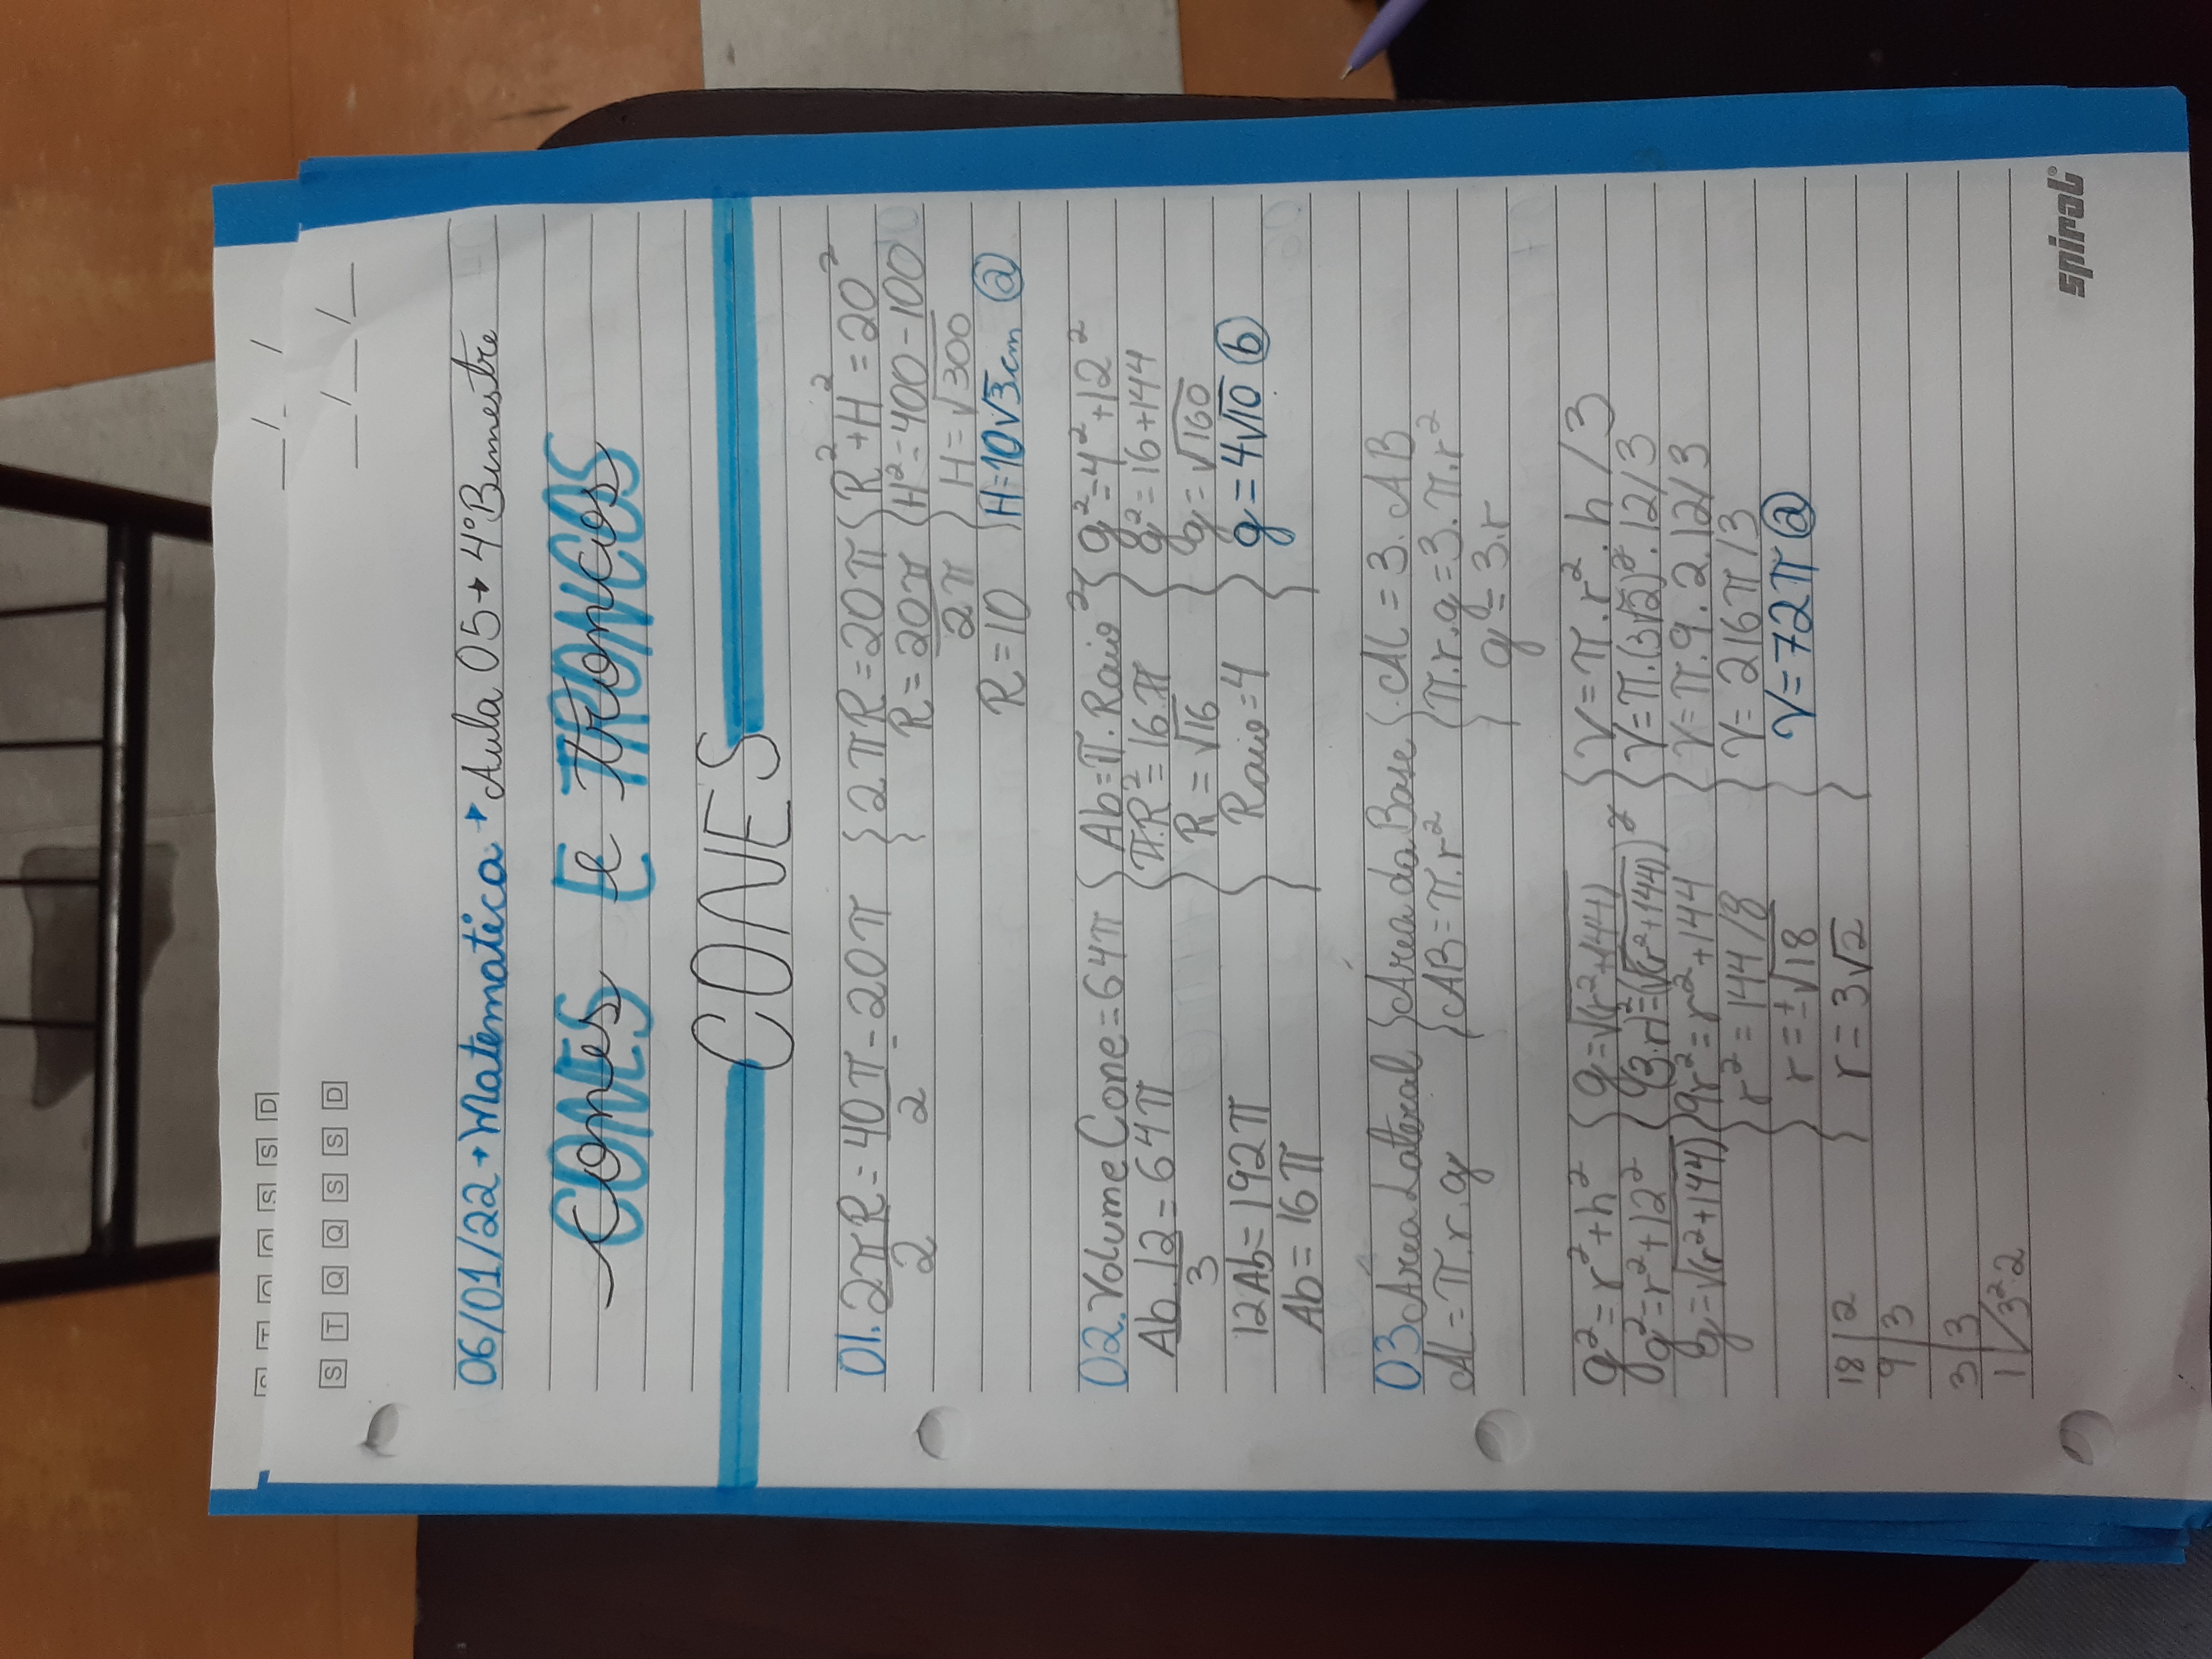 S T Q Q S S D
__/__/__
S T Q Q S S D
__/__/__
06/01/22 → Matematica → Aula 05 → 4º Bimestre
CONES E TRONCOS
cones e troncos
CONES
01. 2πR/2 = 40π/2 = 20π
2πR = 20π
R = 20π/2π
R = 10
R² + H² = 20²
H² = 400 - 100
H = √300
H = 10√3 cm ⓐ
02. Volume Cone = 64π
Ab.12/3 = 64π
12Ab = 192π
Ab = 16π
Ab = π. Raio²
π.R² = 16.π
R = √16
Raio = 4
g² = 4² + 12²
g² = 16 + 144
g = √160
g = 4√10 ⓑ
03 Área Lateral
Al = π.r.g
Área da Base
AB = π.r²
Al = 3. AB
π.r.g = 3.π.r²
g = 3.r
g² = r² + h²
g² = r² + 12²
g = √(r² + 144)
g = √(r² + 144)
(3.r)² = (√(r² + 144))²
9r² = r² + 144
r² = 144/8
r = ±√18
r = 3√2
V = π.r².h/3
V = π.(3√2)².12/3
V = π.9.2.12/3
V = 216π/3
V = 72π ⓐ
18 | 2
9 | 3
3 | 3
1 / 3².2
spiral®